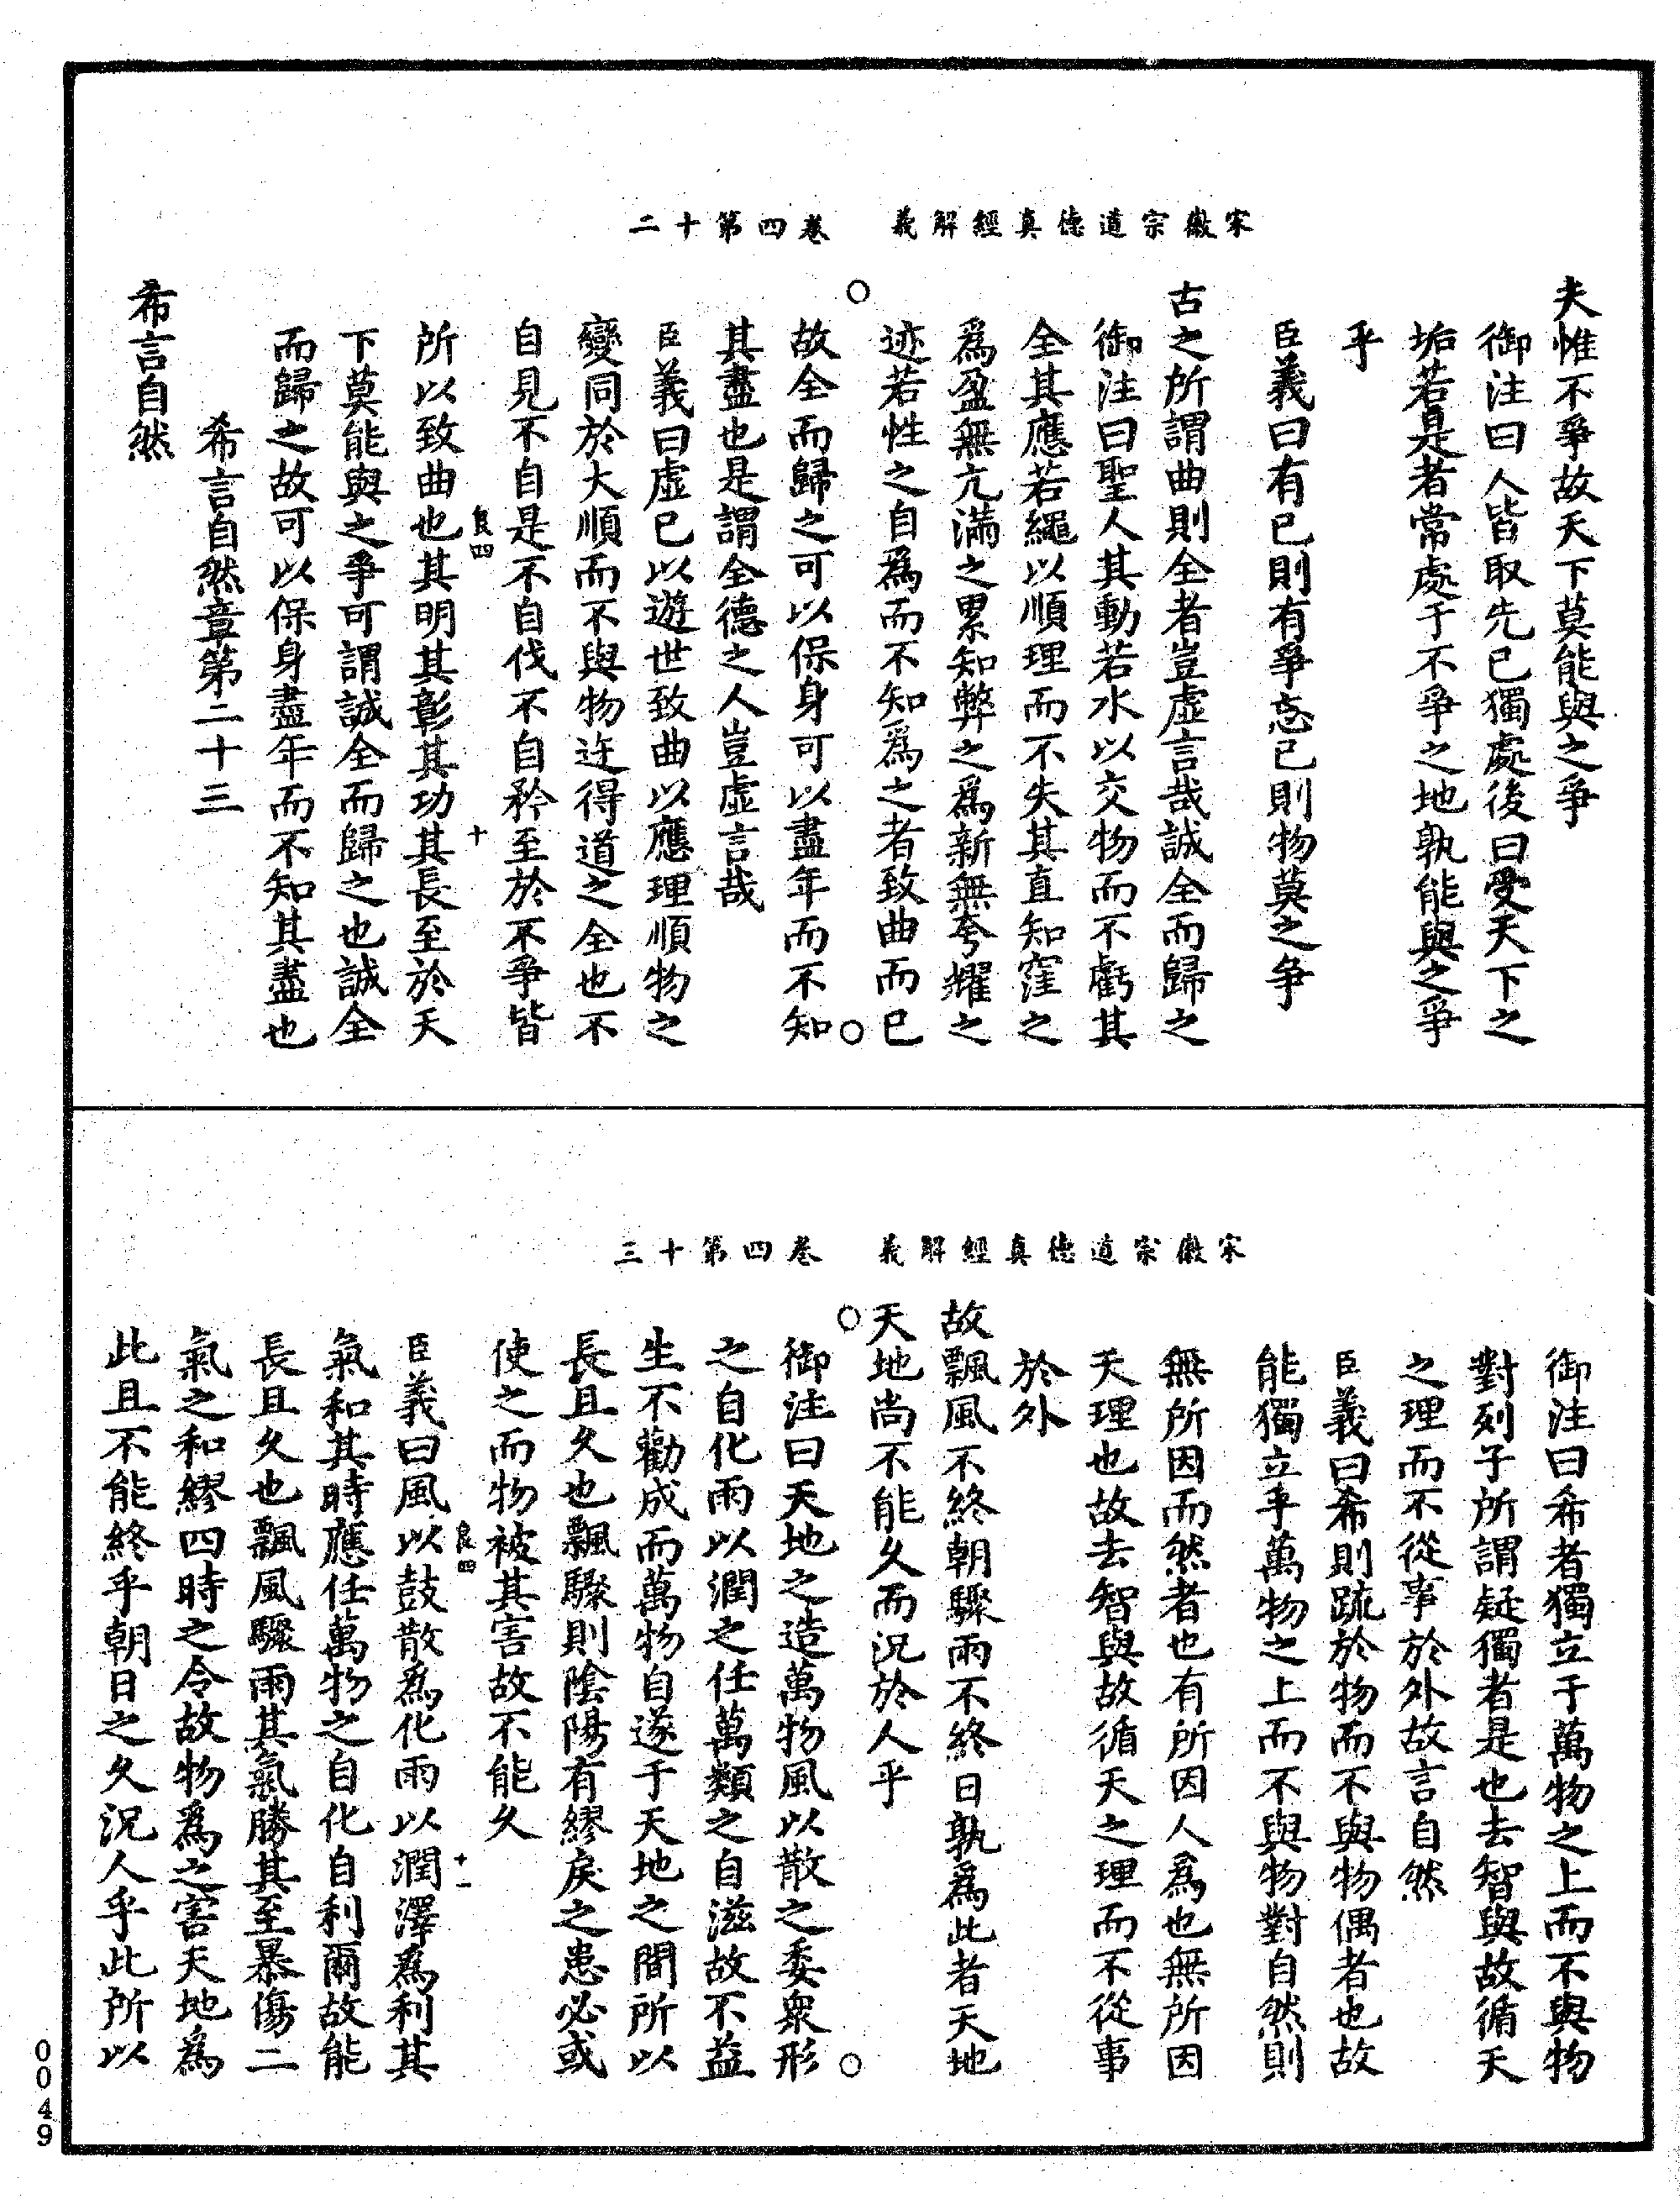 宋徽宗道德真經解義　卷四第十二
夫惟不爭故天下莫能與之爭
御注曰人皆取先已獨處後曰受天下之
垢若是者常處于不爭之地孰能與之爭
乎
臣義曰有已則有爭忘已則物莫之爭
古之所謂曲則全者豈虛言哉誠全而歸之
御注曰聖人其動若水以交物而不虧其
全其應若繩以順理而不失其直知窪之
爲盈無亢滿之累知弊之爲新無夸耀之
迹若性之自爲而不知爲之者致曲而已
故全而歸之可以保身可以盡年而不知
其盡也是謂全德之人豈虛言哉
臣義曰虛已以遊世致曲以應理順物之
變同於大順而不與物迕得道之全也不
自見不自是不自伐不自矜至於不爭皆
良四　十
所以致曲也其明其彰其功其長至於天
下莫能與之爭可謂誠全而歸之也誠全
而歸之故可以保身盡年而不知其盡也
希言自然章第二十三
希言自然
宋徽宗道德真經解義　卷四第十三
御注曰希者獨立于萬物之上而不與物
對列子所謂疑獨者是也去智與故循天
之理而不從事於外故言自然
臣義曰希則疏於物而不與物偶者也故
能獨立乎萬物之上而不與物對自然則
無所因而然者也有所因人爲也無所因
天理也故去智與故循天之理而不從事
於外
故飄風不終朝驟雨不終日孰爲此者天地
天地尚不能久而況於人乎
御注曰天地之造萬物風以散之委衆形
之自化雨以潤之任萬類之自滋故不益
生不勸成而萬物自遂于天地之間所以
長且久也飄驟則陰陽有繆戾之患必或
使之而物被其害故不能久
良四　十一
臣義曰風以鼓散爲化雨以潤澤爲利其
氣和其時應任萬物之自化自利爾故能
長且久也飄風驟雨其氣勝其至暴傷二
氣之和繆四時之令故物爲之害天地爲
此且不能終乎朝日之久況人乎此所以
0049